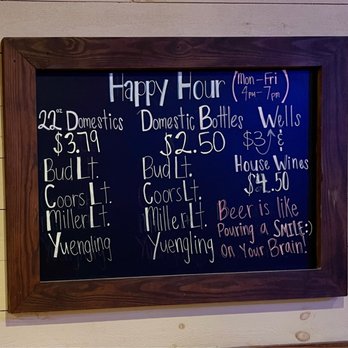 Happy Hour (Mon-Fri)
4pm-7pm
22oz Domestics
$3.79
Bud Lt.
Coors Lt.
Miller Lt.
Yuengling
Domestic Bottles
$2.50
Bud Lt.
Coors Lt.
Miller Lt.
Yuengling
Wells
$3↑ &
House Wines
$4.50
Beer is like
Pouring a SMILE :)
On Your Brain!